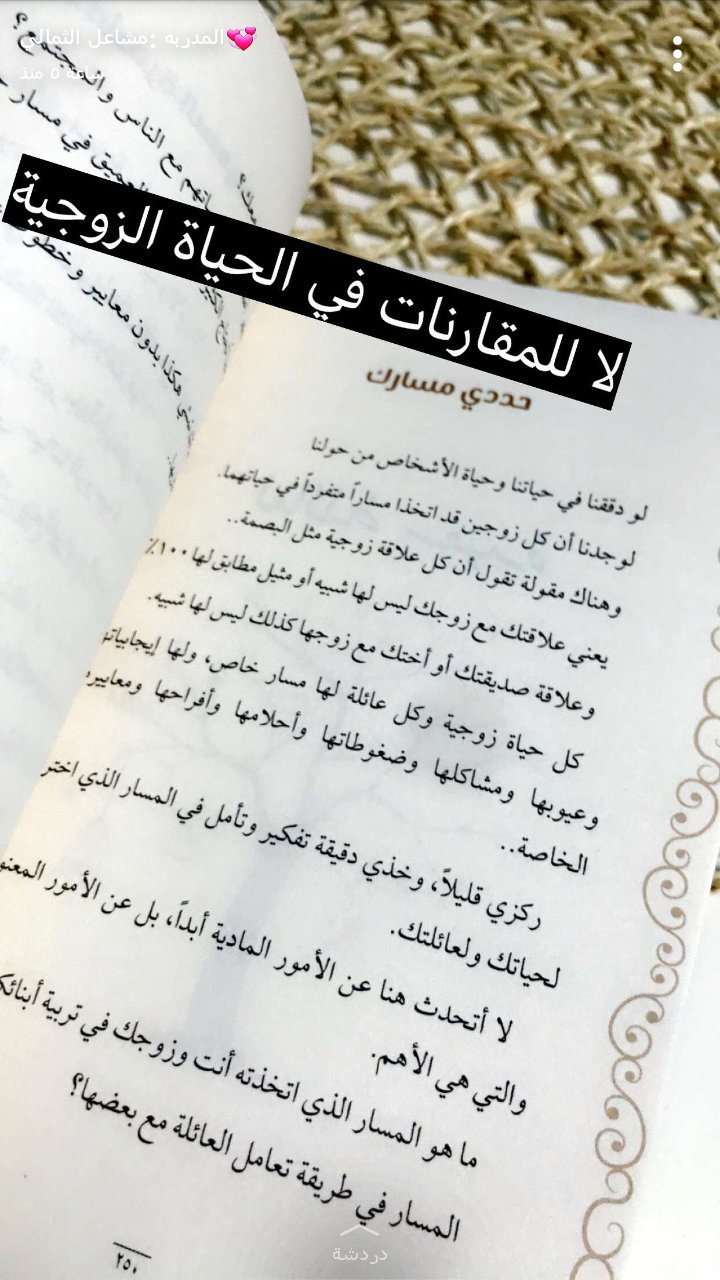 المدربه :مشاعل الثمالي💞
ساعة ٥ منذ
لا للمقارنات في الحياة الزوجية
والمجتمع؟
مع الناس
العميق في مسار
هكذا بدون معايير وخطو
حددي مسارك
لو دققنا في حياتنا وحياة الأشخاص من حولنا
لوجدنا أن كل زوجين قد اتخذا مساراً متفرداً في حياتهما.
وهناك مقولة تقول أن كل علاقة زوجية مثل البصمة..
يعني علاقتك مع زوجك ليس لها شبيه أو مثيل مطابق لها ١٠٠٪
وعلاقة صديقتك أو أختك مع زوجها كذلك ليس لها شبيه.
كل حياة زوجية وكل عائلة لها مسار خاص، ولها إيجابياته
وعيوبها ومشاكلها وضغوطاتها وأحلامها وأفراحها ومعاييره
الخاصة..
ركزي قليلاً، وخذي دقيقة تفكير وتأمل في المسار الذي اختر
لحياتك ولعائلتك.
لا أتحدث هنا عن الأمور المادية أبداً، بل عن الأمور المعنو
والتي هي الأهم.
ما هو المسار الذي اتخذته أنت وزوجك في تربية أبنائك
المسار في طريقة تعامل العائلة مع بعضها؟
٢٥٠
دردشة